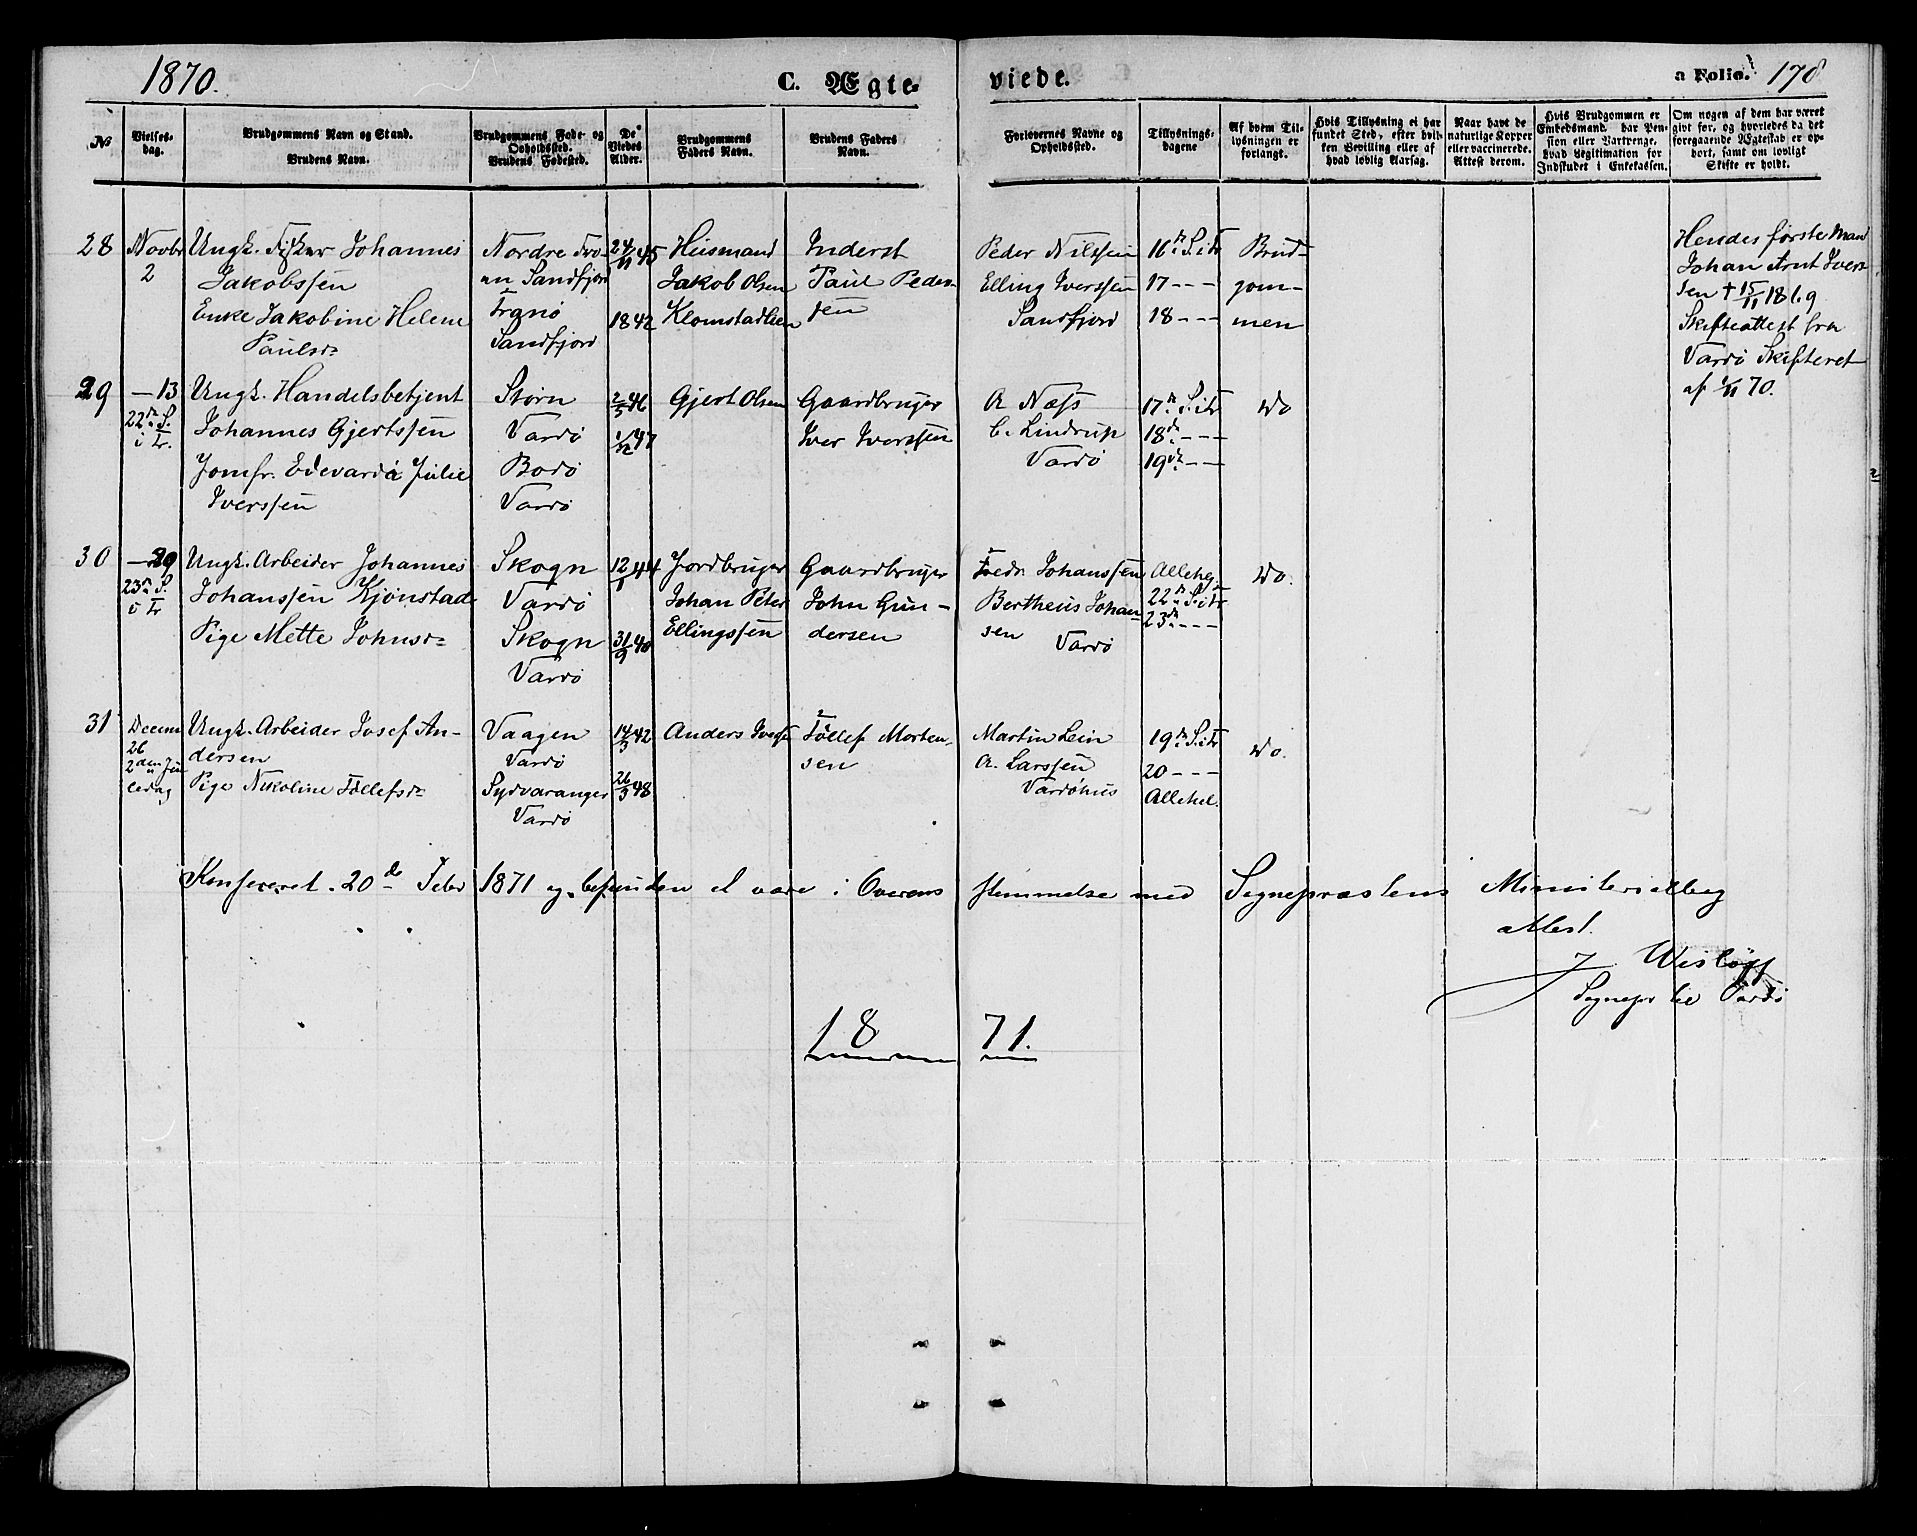 1870.
C. Ægte-
viede.
a Folio. 178
No
Vielses-
dag.
Brudgommens Navn og Stand.
Brudens Navn.
Brudgommens Føde- og
Opholdssted.
Brudens Fødested.
De
Viedes
Alder.
Brudgommens
Faders Navn.
Brudens Faders
Navn.
Forlovernes Navne og
Opholdssted.
Tillysnings-
dagene
Af hvem Til-
lysningen er
forlangt.
Hvis Tillysning ei har
fundet Sted, efter hvil-
ken Bevilling eller af
hvad lovlig Aarsag.
Naar havt de
naturlige Kopper
eller vaccinerede.
Attest derom.
Hvis Brudgommen er
Embedsmand, har Pen-
sion eller Vartpenge,
hvad Legitimation for
Indskudet i Enkekassen.
Om nogen af dem har været
givt før, og hvorledes da det
foregaaende Ægteskab er op-
hørt, samt om lovligt
Skifte er holdt.
28
Novbr
2
Ungk. Fisker Johannes
Jakobssen
Enke Jakobine Helene
Paulsd
Nordre Tro-
en Sandfjord
Tranø
Sandfjord
24/11 45
1842
Husmand
Jakob Olsen
Klomstadlien
Inderst
Paul Peder-
sen
Peder Nilssen
Elling Iverssen
Sandfjord
16 S. i Tr
17 - - -
18 - - -
Brud-
gom-
men
Hendes første Mand
Johan Arnt Iver-
sen † 15/11 1869
Skifteattest fra
Vardö Skifteret
af 1/11 70.
29
— 13
22 S.
i Tr.
Ungk. Handelsbetjent
Johannes Gjertssen
Jomfr. Edevarda Julie
Iverssen
Störn
Vardö
Bodö
Vardö
2/5 46
1/12 47
Gjert Olsen
Gaardbruger
Iver Iverssen
A Næss
C. Lindrup
Vardö
17 S. i Tr
18 - - -
19 - -
do
30
— 29
23 S.
i Tr
Ungk. Arbeider Johannes
Johanssen Kjönstad
Pige Mette Johnsd
Skogn
Vardö
Skogn
Vardö
12/1 44
31/9 40
Jordbruger
Johan Peter
Ellingssen
Gaardbruger
John Gun-
dersen
Fredr. Johanssen
Bertheus Johan-
sen
Vardö
Alleheg
22 S. i Tr
23 - - -
do.
31
Decem
26
2den Ju-
ledag
Ungk. Arbeider Josef An-
dersen
Pige Nikoline Tollefsd
Vaagen
Vardö
Sydvaranger
Vardö
14/3 42
26/3 48
Anders Iversen
Tollef Morten-
sen
Martin Lein
A. Larssen
Vardöhus
19 S. i Tr
20 - - -
Allehel.
do.
Konfereret 20de Febr 1871 og befunden at være i Overens stemmelse med Sognepræstens Ministerialbog
attest.
J Wislöff
Sognepr til Vardö
18 71.